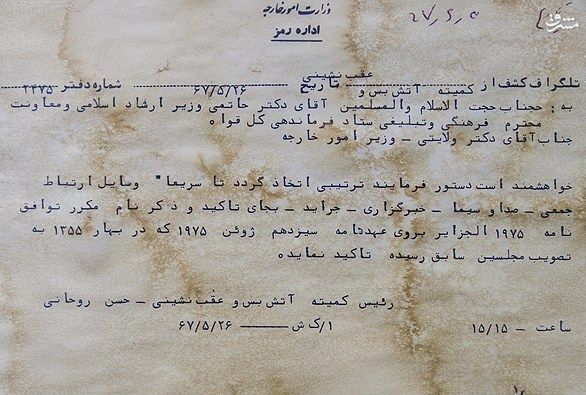 وزارت امور خارجه
اداره رمز
۶۷٫۶٫۵
مشرق
عقب نشینی
تلگراف کشف از کمیته آتش بس و تاریخ ۶۷/۵/۲۶ شماره دفتر ۲۴۷۵
به : جناب حجت الاسلام والمسلمین آقای دکتر حاتمی وزیر ارشاد اسلامی ومعاونت
محترم فرهنگی وتبلیغی ستاد فرماندهی کل قوا ه
جناب آقای دکتر ولایتی ــ وزیر امور خارجه
خواهشمند است دستور فرمایند ترتیبی اتخاذ گردد تا سریعا" وسایل ارتباط
جمعی ـ صدا و سیما ـ خبرگزاری ـ جراید ـ بجای تاکید و ذکر نام مکرر توافق
نامه ۱۹۷۵ الجزایر بروی عهدنامه سیزدهم ژوئن ۱۹۷۵ که در بهار ۱۳۵۵ به
تصویب مجلسین سابق رسیده تاکید نماید ه
رئیس کمیته آتش بس و عقب نشینی ــ حسن روحانی
ساعت ــ ۱۵/۱۵ ۱/ک ش ــــــ ۶۷/۵/۲۶